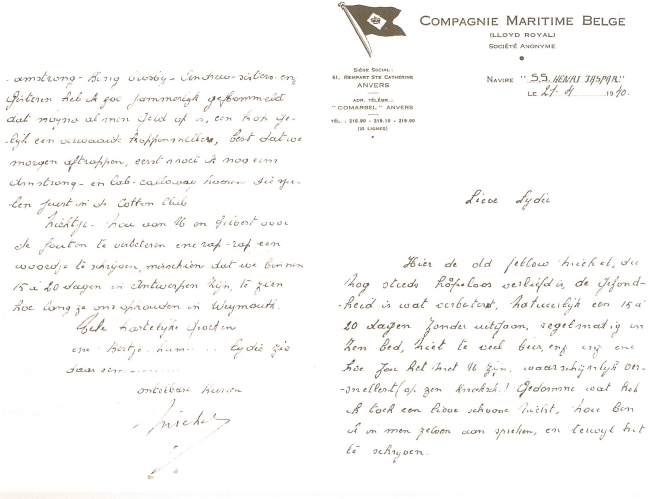 COMPAGNIE MARITIME BELGE
(LLOYD ROYAL)
SOCIÉTÉ ANONYME
SIÈGE SOCIAL:
61, REMPART STE CATHERINE
ANVERS
ADR. TÉLÉGR.:
"COMARBEL" ANVERS
TÉL.: 219.90 - 219.10 - 219.90
(15 LIGNES)
NAVIRE "S.S. HENRI JASPAR"
LE 21. 4 1940.
Lieve Lydie
Hier de old fellow michel, die
nog steeds hopeloos verliefd is, de gezond-
heid is wat verbeterd, natuurlijk een 15 à
20 dagen zonder uitgaan, regelmatig in
zen bed, niet te veel bier, enz enz en
hoe zou het met U zijn, waarschijnlijk ver-
-snellert (op zen !) Gedomme wat heb
ik toch een lieve schoone nicht, hou ben
ik in men aan spreken, en terwijl het
te schrijven.
-amstrong- King - Andrew-sisters. enz
Gisteren heb ik jammerlijk
dat al men geld op is, een kop ge-
lijk een , best dat we
morgen aftrappen, eerst moet ik nog eens
Amstrong- en Cab-calloway hooren die spe-
len juist in de Cotton Club
Nichtje- hou van U en gelooft voor
de fouten te verbeteren en rap-rap een
woordje te schrijven, misschien dat we binnen
15 à 20 dagen in Antwerpen zijn, te zien
hoe lang ze ons ophouden in Weymouth.
Hartelijke Groeten
ene hum.... Lydie zie
daar een
ontelbare kussen
Michel